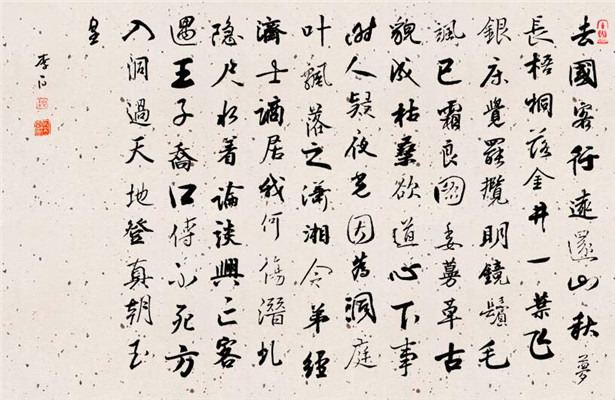 去國客行遠還山秋夢
長梧桐落金井一葉飞
銀床覺罷攬明鏡鬢毛
颯已霜良圖委蔓草古
貌成枯桑欲道心下事
時人疑夜光因为洞庭
叶飄落之瀟湘令弟經
濟士謫居我何傷潛虬
隐尺水著論談興亡客
遇王子喬口傳不死方
入洞過天地登真朝玉
皇
李白